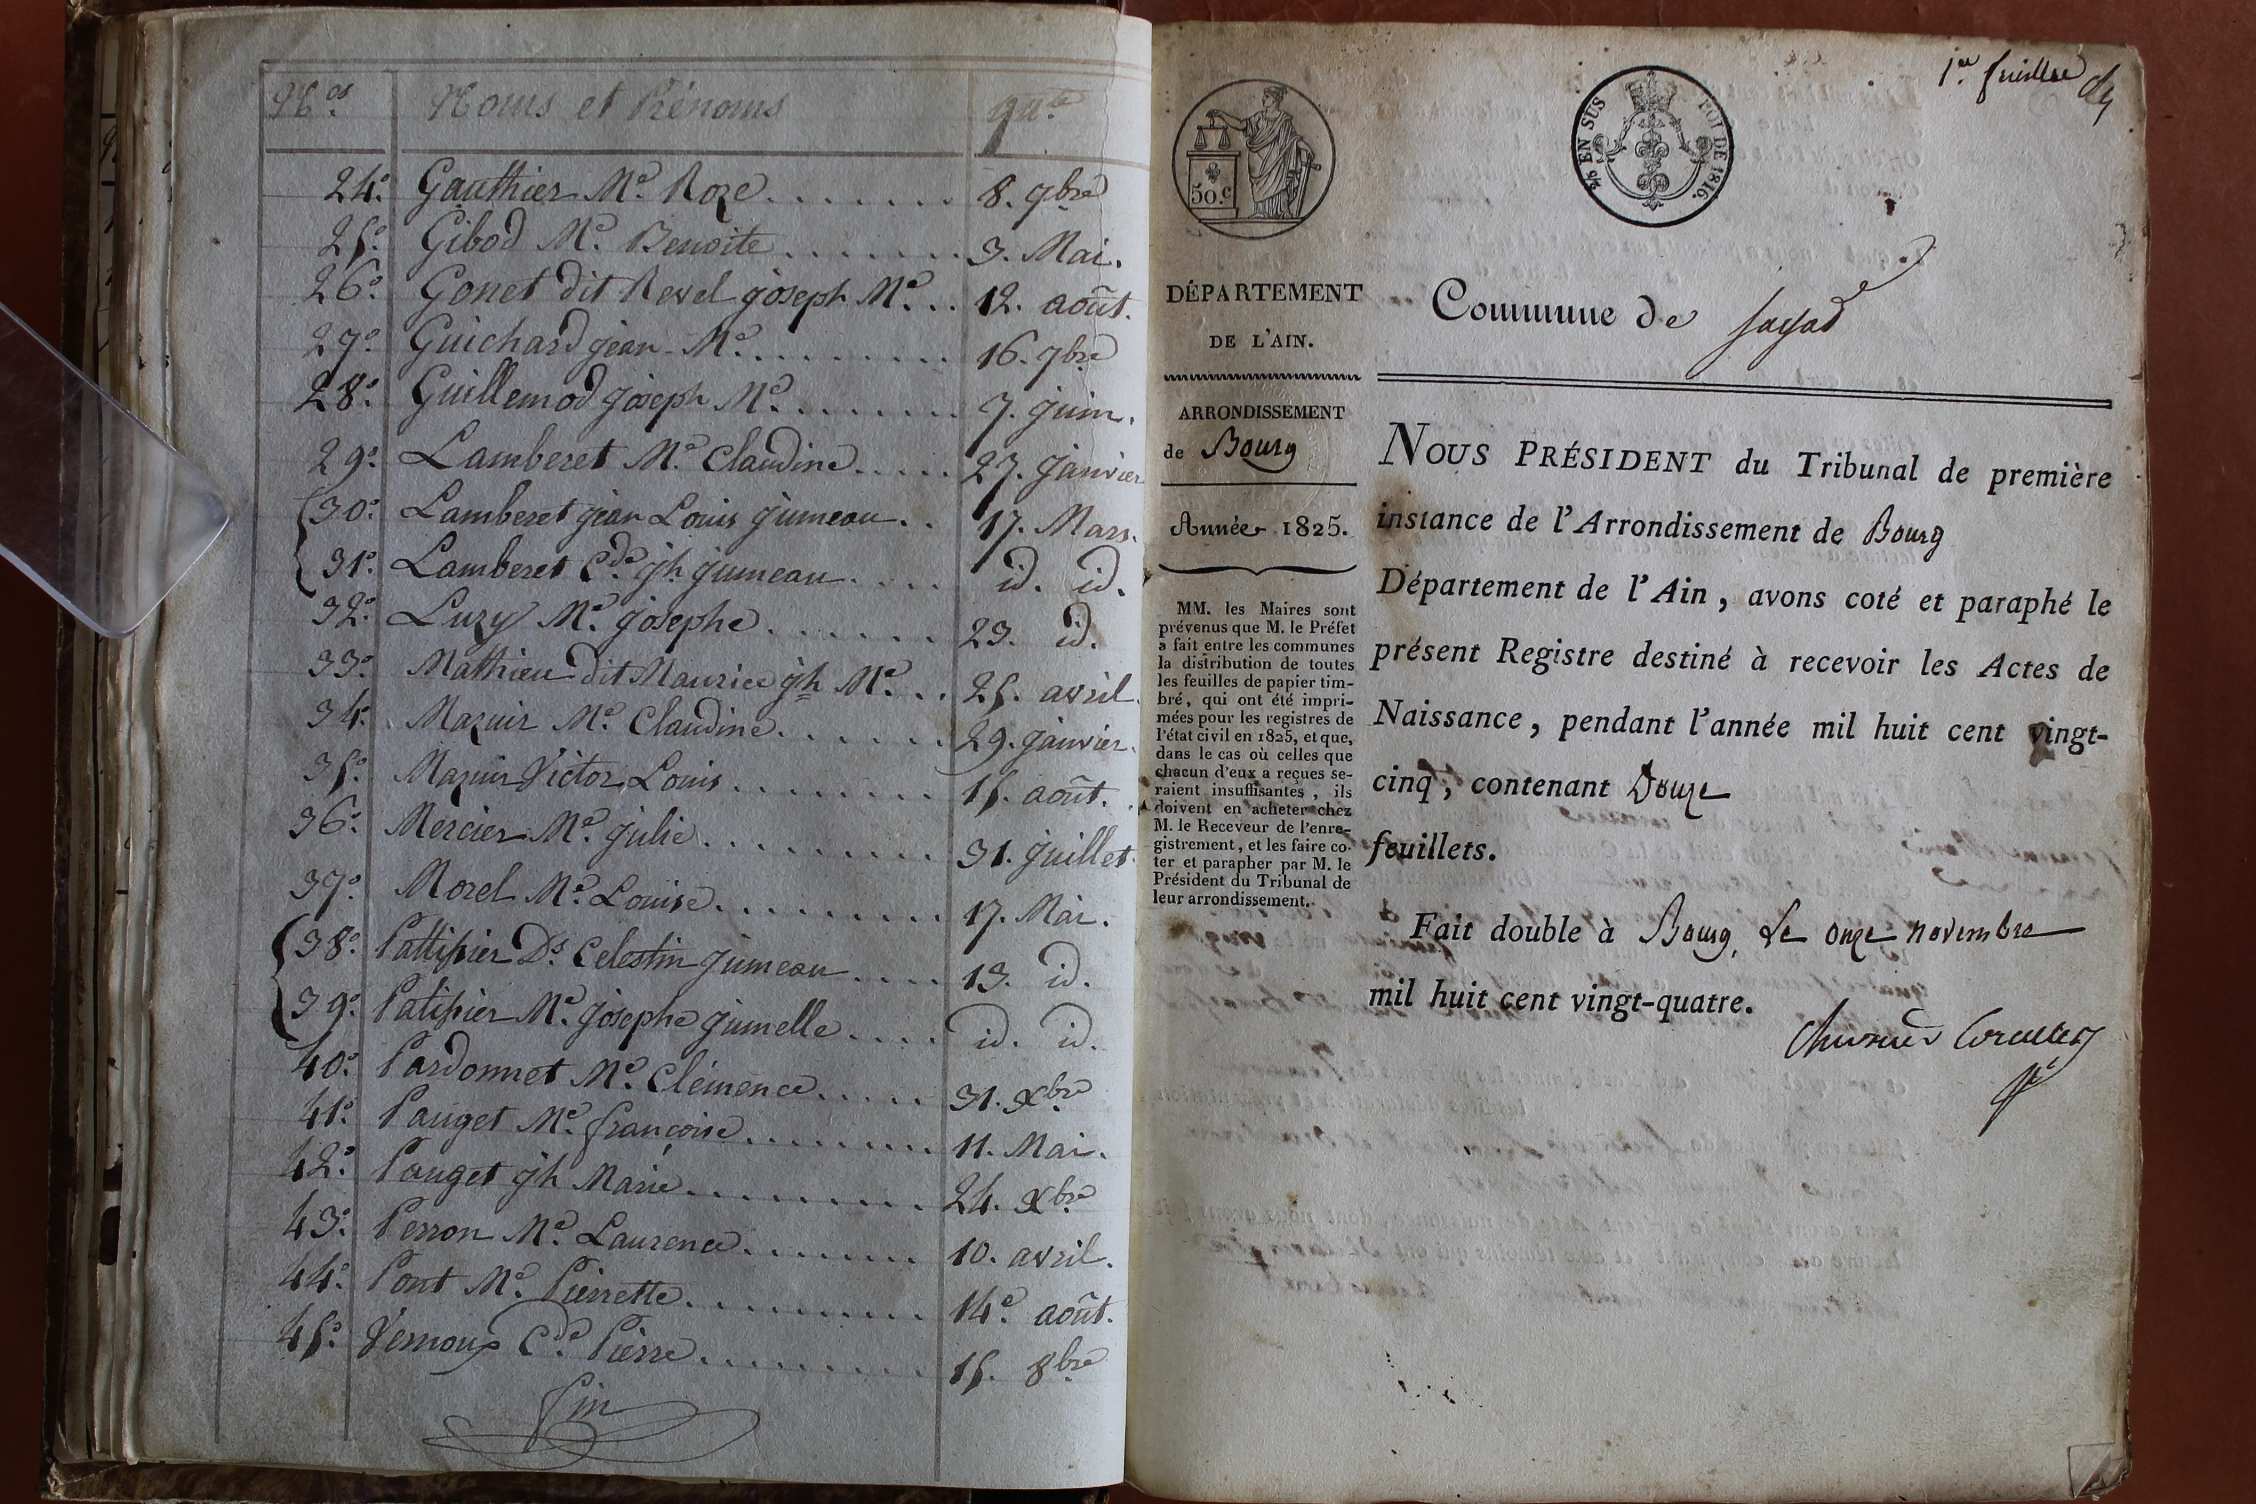 Nos Noms et Prénoms
24° Gauthier Me Roze........ 8. 9bre
25° Gibod Me Benoite....... 3. Mai.
26° Gonet dit Revel joseph Me.. 12. août.
27° Guichard jean-Me......... 16. 9bre
28° Guillemod joseph Me....... 7. juin.
29° Lamberet Me Claudine..... 27. janvier
30° Lamberet jean Louis jumeau.. 17. Mars.
31° Lamberet Cde jh jumeau.... id. id.
32° Luzy Me josephe....... 23. id.
33° Mathieu dit Maurice jh Me.. 25. avril.
34° Mazuir Me Claudine....... 29. janvier.
35° Mazuir Victor Louis........ 15. août.
36° Mercier Me julie......... 31. juillet.
37° Morel Me Louise......... 17. Mai.
38° Pattissier Ds Celestin jumeau.... 13. id.
39° Patissier Me josephe jumelle.... id. id.
40° Pardonnet Me Clémence..... 31. Xbre
41° Pauget Me françoise........ 11. Mai.
42° Pauget jh Marie......... 24. Xbre
43° Perron Me Laurence....... 10. avril.
44° Pont Me Pierrette......... 14e août.
45° Vernoux Cde Pierre......... 15. 8bre
Fin
1er feuillet
50.c
EN SUS
LOI DE 1816.
DÉPARTEMENT
DE L'AIN.
ARRONDISSEMENT
de Bourg
Année 1825.
MM. les Maires sont
prévenus que M. le Préfet
a fait entre les communes
la distribution de toutes
les feuilles de papier tim-
bré, qui ont été impri-
mées pour les registres de
l'état civil en 1825, et que,
dans le cas où celles que
chacun d'eux a reçues se-
raient insuffisantes, ils
doivent en acheter chez
M. le Receveur de l'enre-
gistrement, et les faire co-
ter et parapher par M. le
Président du Tribunal de
leur arrondissement.
Commune de Jayat
NOUS PRÉSIDENT du Tribunal de première
instance de l'Arrondissement de Bourg
Département de l'Ain, avons coté et paraphé le
présent Registre destiné à recevoir les Actes de
Naissance, pendant l'année mil huit cent vingt-
cinq, contenant Douze
feuillets.
Fait double à Bourg, Le onze novembre
mil huit cent vingt-quatre.